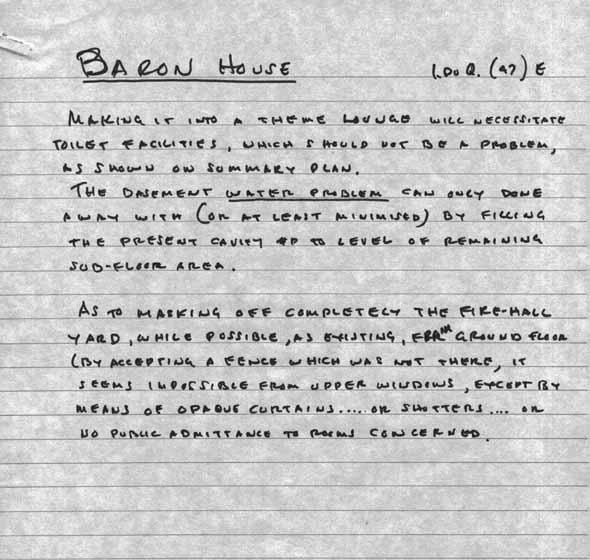 BARON HOUSE I.DuQ. (47) E
MAKING IT INTO A THEME LOUNGE WILL NECESSITATE
TOILET FACILITIES, WHICH SHOULD NOT BE A PROBLEM,
AS SHOWN ON SUMMARY PLAN.
THE BASEMENT WATER PROBLEM CAN ONLY DONE
AWAY WITH (OR AT LEAST MINIMISED) BY FILLING
THE PRESENT CAVITY UP TO LEVEL OF REMAINING
SUB-FLOOR AREA.
AS TO MASKING OFF COMPLETELY THE FIRE-HALL
YARD, WHILE POSSIBLE, AS EXISTING, FROM GROUND FLOOR
(BY ACCEPTING A FENCE WHICH WAS NOT THERE, IT
SEEMS IMPOSSIBLE FROM UPPER WINDOWS, EXCEPT BY
MEANS OF OPAQUE CURTAINS.... OR SHUTTERS.... OR
NO PUBLIC ADMITTANCE TO ROOMS CONCERNED.